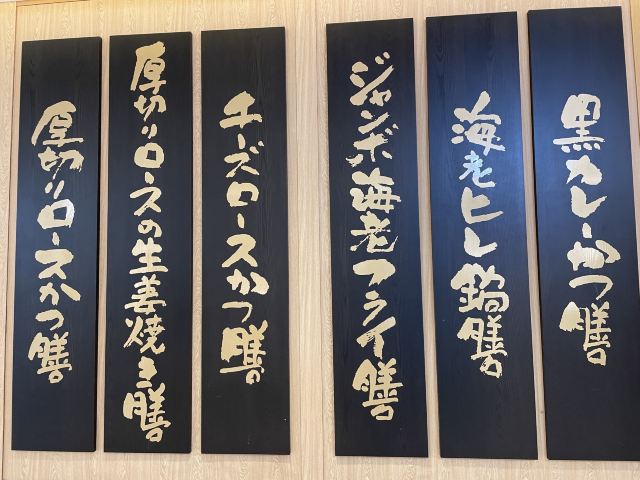 黒カレーかつ膳
海老ヒレ鍋膳
ジャンボ海老フライ膳
チーズロースかつ膳
厚切りロースの生姜焼き膳
厚切りロースかつ膳